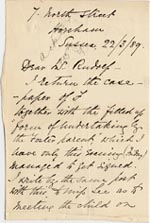 7 North Street
Horsham
Sussex 22/3/89
Dear Mr Rudolf
I return the case-
paper of
together with the filled up
form of undertaking by
the foster parent which I
have only this
managed to get
I write by the same post
with this to Miss
meeting the child on